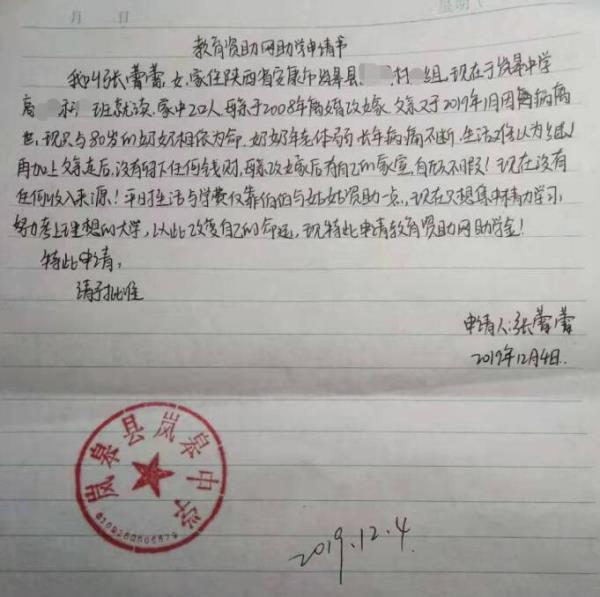 月 日
星期（
教育资助网助学申请书
我叫张蕾蕾，女，家住陕西省安康市岚皋县 村 组，现在于岚皋中学
高 科 班就读，家中2口人，母亲于2008年离婚改嫁，父亲又于2019年1月因病离
世，现只与80岁的奶奶相依为命，奶奶年老体弱，长年病痛不断，生活难以为继！
再加上父亲走后，没有留下任何钱财，母亲改嫁后有自己的家室，自顾不暇！现在没有
任何收入来源！平日生活与学费仅靠伯伯与姑姑资助一点，现在只想集中精力学习，
努力考上理想的大学，以此改变自己的命运，现特此申请教育资助网助学金！
特此申请，
请予批准
申请人：张蕾蕾
2019年12月4日.
岚皋县岚皋中学
2019.12.4